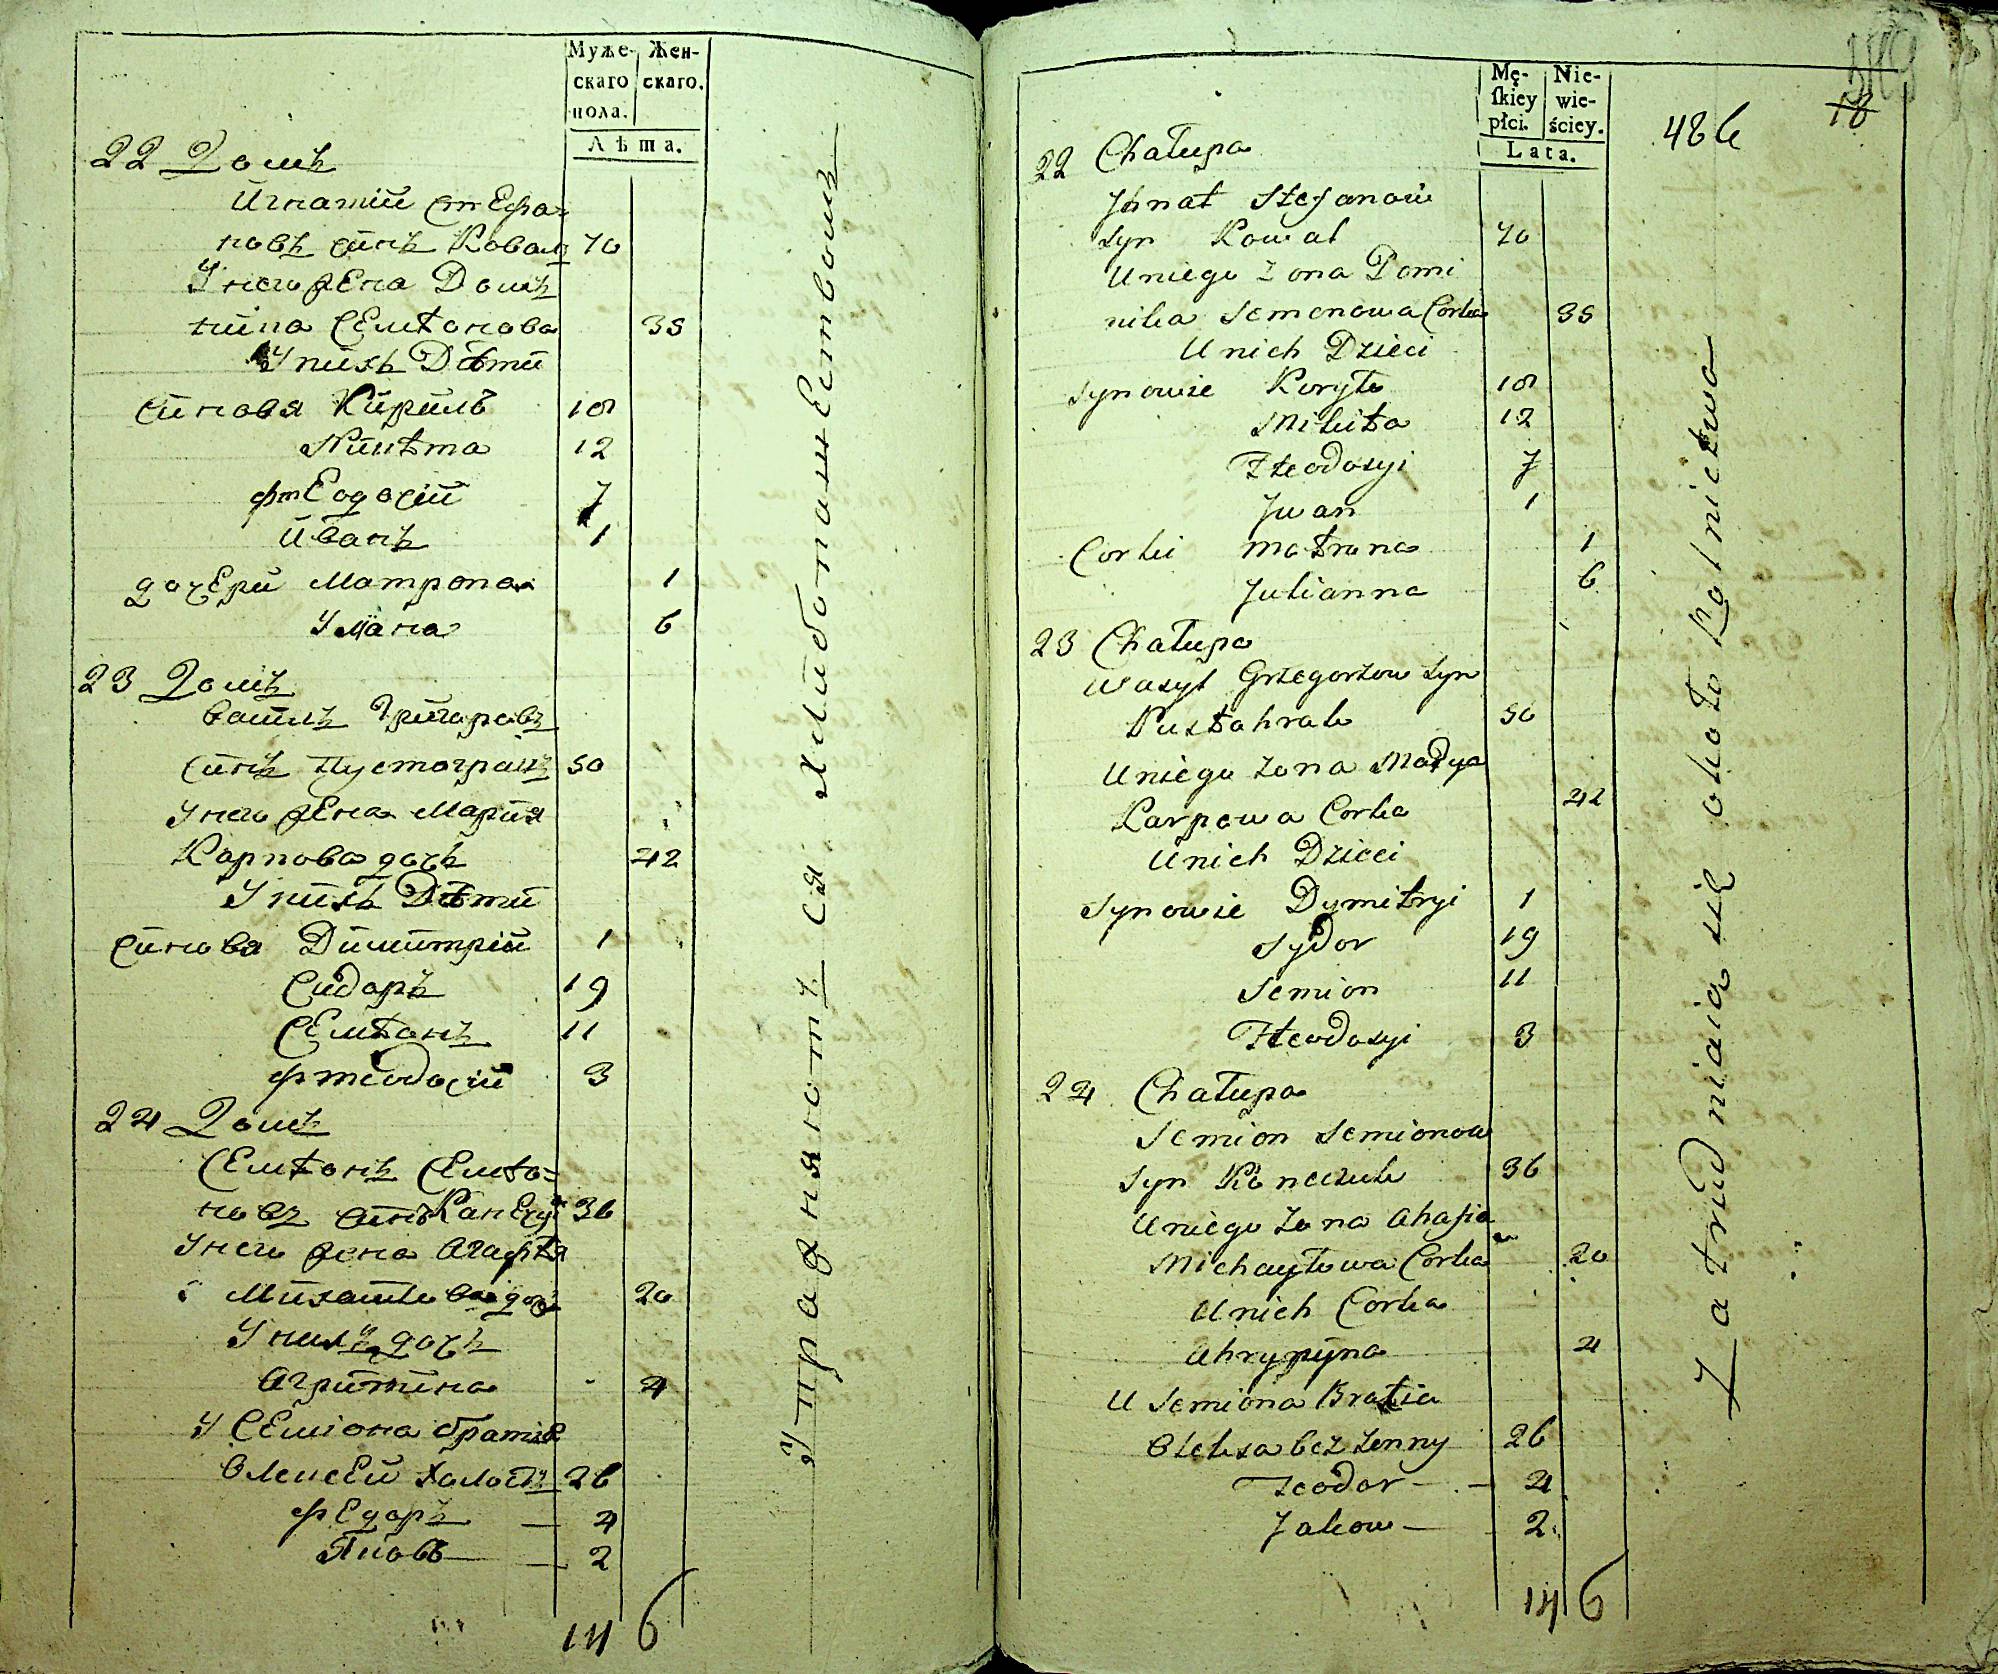 Муже-
скаго
пола.
Жен-
скаго.
Лѣта.
22 Домъ
Игнатій Стефа-
новъ синъ Коваль 70
У него жена Доме-
никиа Семіонова 35
У нихъ Дѣти
синовя Кирилъ 18
Никита 12
Фтеодосій 7
Иванъ 1
дочери Матрона 1
Улїана 6
23 Домъ
Василъ Григоровъ
синъ Пустогракъ 50
У него жена Мария
Карпова дочъ 42
У нихъ Дѣти
Синовя Димитрій 1
Сидоръ 19
Семіонъ 11
Фтеодосій 3
24 Домъ
Семіонъ Семіо-
новъ синъ Канечук 36
У него жена Агафія
Михайлова дочъ 20
У нихъ дочъ
Агрипина 4
У Семіона братія
Олексей холостъ 26
Федоръ — 4
Яковъ — 2
14 6
Упражняютъ ся хлибопашеством
Mę-
ſkiey
płci.
Nie-
wie-
ściey.
Lata.
486
18
22 Chałupa
Jhnat Stefanow
Syn Kowal 70
U niego Zona Domi
nika Semenowa Corka 35
U nich Dzieci
Synowie Koryło 18
Mikita 12
Fteodosyi 7
Jwan 1
Corki Matrona 1
Julianna 6
23 Chałupa
Wasyl Grzegorzow Syn
Pustohrak 50
U niego Zona Marya
Karpowa Corka 42
U nich Dzieci
Synowie Dymitryi 1
Sydor 19
Semion 11
Fteodosyi 3
24 Chałupa
Semion Semionow
Syn Koneczuk 36
U niego Zona Ahafia
Michayłowa Corka 20
U nich Corka
Ahrypyna 4
U Semiona Bratia
Oleksa bez Zonny 26
Teodor — 4
Jakow — 2
14 6
Zatrudniaią się około Rolnictwa